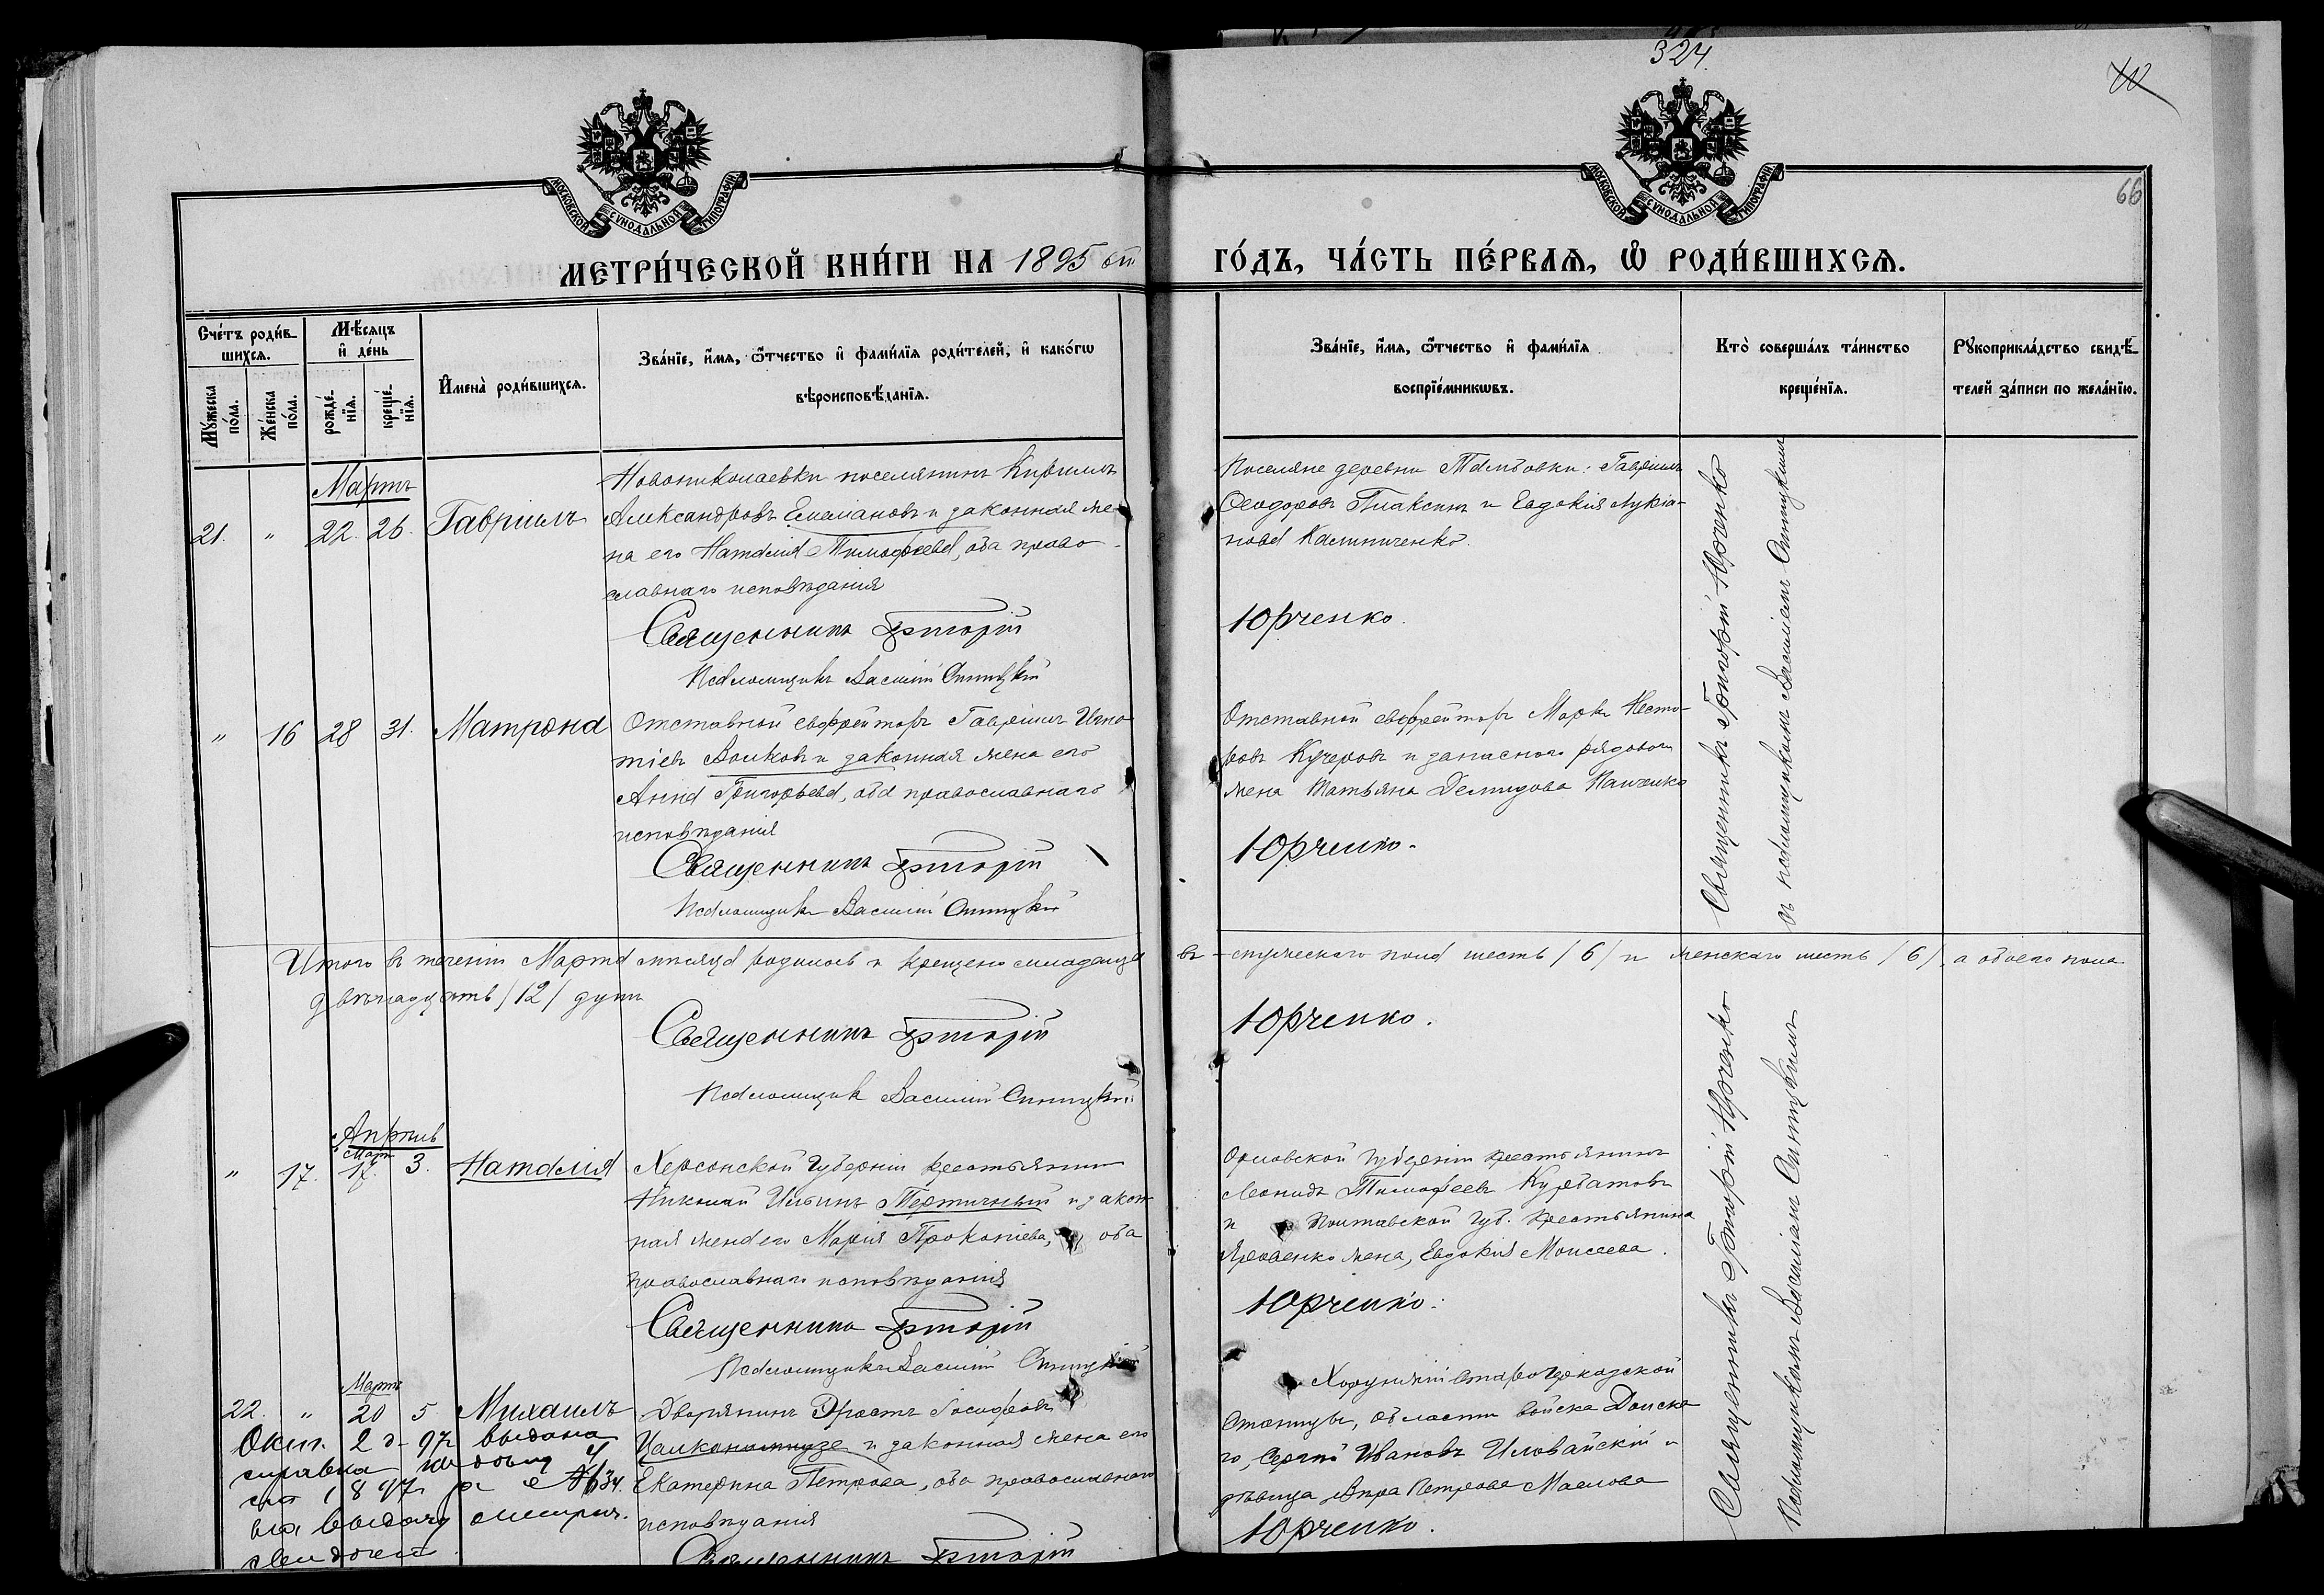 324.
66
МОСКОВСКОЙ СѴНОДАЛЬНОЙ ТИПОГРАФІИ
МОСКОВСКОЙ СѴНОДАЛЬНОЙ ТИПОГРАФІИ
МЕТРИ́ЧЕСКОЙ КНИ́ГИ НА 1895 ый ГО́ДЪ, ЧА́СТЬ ПЕ́РВАѦ, Ѡ҆ РОДИ́ВШИХСѦ.
Сче́тъ роди́в-
шихсѧ.
Мꙋ́жеска по́ла.
Же́нска по́ла.
Мѣ́сѧцъ
и҆ де́нь
рожде́-
нїѧ.
креще́-
нїѧ.
И҆мена̀ роди́вшихсѧ.
Зва́нїе, и҆́мѧ, ѻ҆́тчество и҆ фами́лїѧ роди́телей, и҆ како́гѡ
вѣроисповѣ́данїѧ.
Зва́нїе, и҆́мѧ, ѻ҆́тчество и҆ фами́лїѧ
воспрїе́мникѡвъ.
Кто̀ соверша́лъ та́инство
креще́нїѧ.
Рꙋкоприкла́дство свидѣ́-
телей за́писи по жела́нїю.
Мартъ
21. " 22. 26. Гавріилъ
Новониколаевки поселянинъ Кириллъ
Александровъ Емельяновъ и законная же-
на его Наталія Тимофеева, оба право-
славнаго исповѣданія
Священникъ Григорій Юрченко.
Псаломщикъ Василій Синицкій
Поселяне деревни Гавріилъ
Феодоровъ Плаксинъ и Евдокія Лукіа-
нова Калиниченко.
Священникъ Григорій Юрченко
съ псаломщикомъ Василіемъ Синицкимъ
" 16 28 31. Матрона
Отставной ефрейторъ Гавріилъ Игна-
тіевъ Волковъ и законная жена его
Анна Григорьева, оба православнаго
исповѣданія
Священникъ Григорій Юрченко.
Псаломщикъ Василій Синицкій
Отставной ефрейторъ Марк Несто-
ровъ Кучеровъ и запаснаго рядового
жена Татьяна Демидова Панченко
Итого въ теченіи Марта мѣсяца родилось и крещено младенцевъ мужескаго пола шесть /6/ и женскаго шесть /6/, а обоего пола
двѣнадцать /12/ душъ
Священникъ Григорій Юрченко.
Псаломщикъ Василій Синицкій
Апрѣль
Март
" 17. 17. 3. Наталія
Херсонской Губерніи крестьянинъ
Николай Ильинъ и закон-
ная жена его Марія Прокопіева, оба
православнаго исповѣданія
Священникъ Григорій Юрченко.
Псаломщикъ Василій Синицкій
Орловской губерніи крестьянинъ
Леонидъ Тимофеевъ Курбатовъ
и Полтавской губ. крестьянина
Яровенко жена, Евдокія Моисеева.
Священникъ Григорій Юрченко
Псаломщикомъ Василіемъ Синицкимъ
Мартъ
22. " 20 5 Михаилъ
Дворянинъ Эрастъ Іосифовъ
и законная жена его
Екатерина Петрова, оба православнаго
исповѣданія
Священникъ Григорій Юрченко.
Хорунжій Старочеркасской
Станицы, области войска Донска-
го, Сергѣй Ивановъ Иловайскій и
дѣвица Вѣра Петрова Маслова
Окт. 2 д. 97 г. выдана
справка